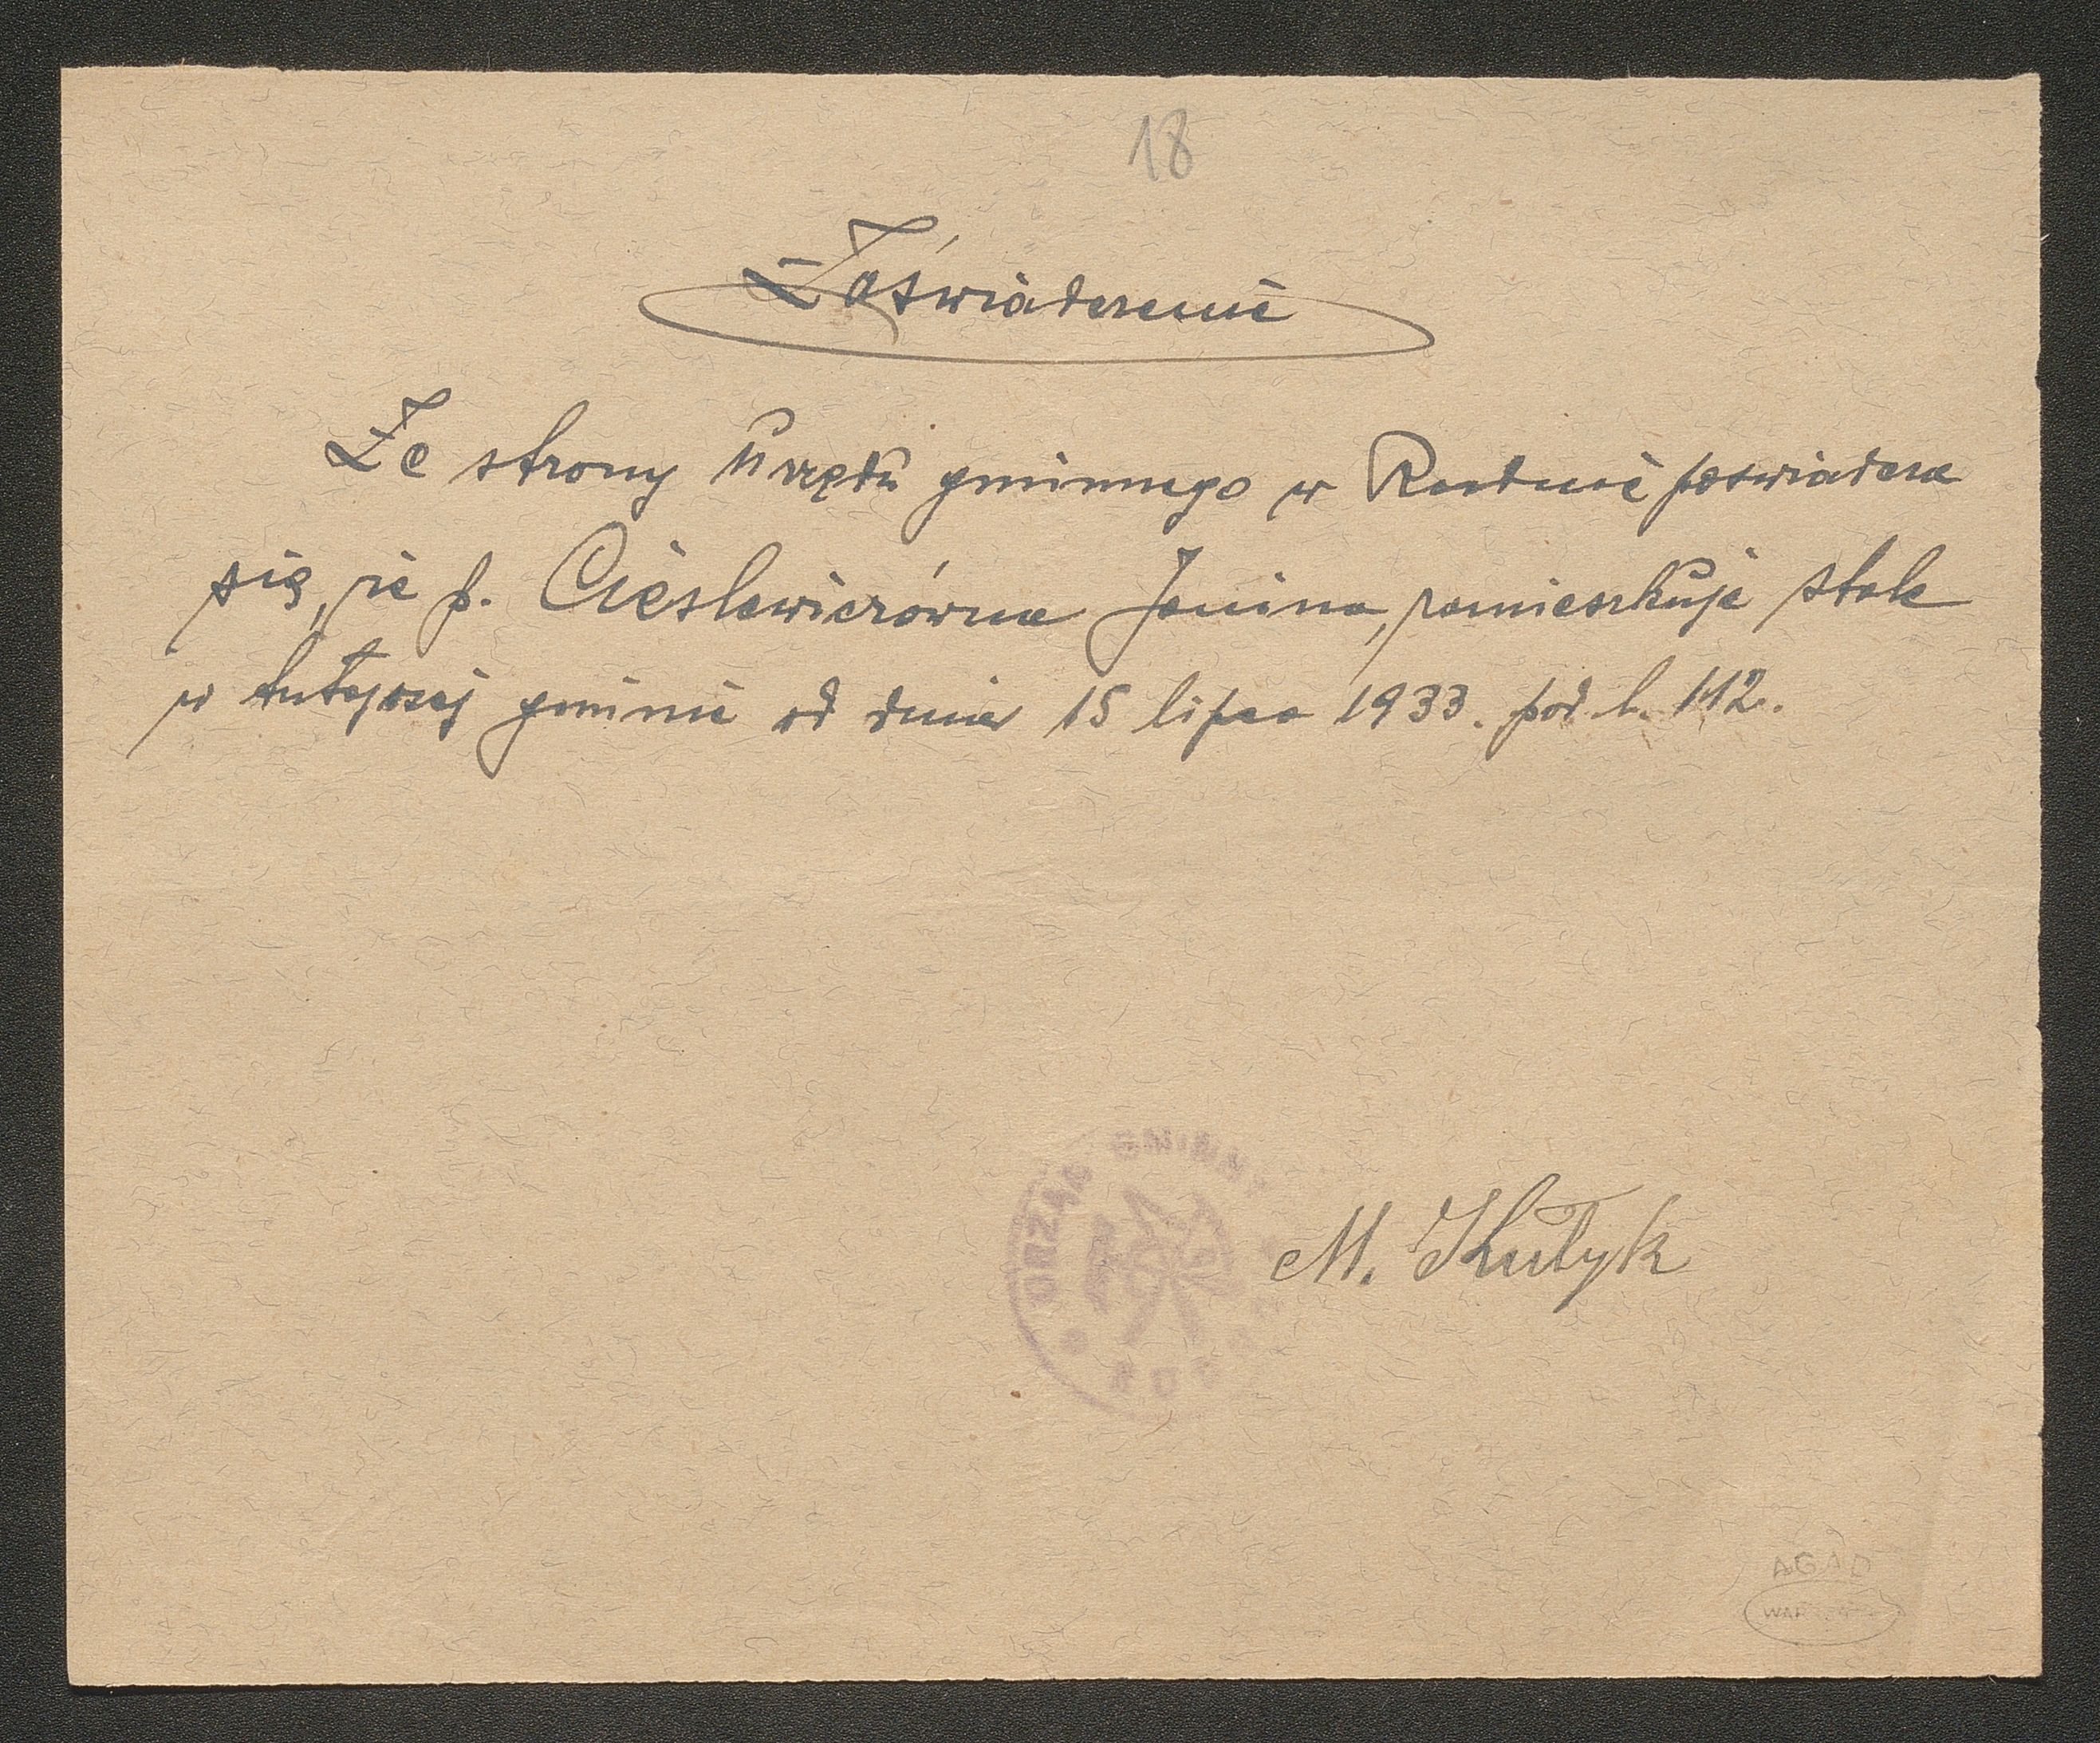 18
Zaświadczenie
Ze strony Urzędu gminnego w Rudnie poświadcza
się, że p. Cieślewiczówna Janina, zamieszkuje stale
w tutejszej gminie od dnia 15 lipca 1933. pod l. 112.
URZĄD GMINNY
M. Kułyk
AGAD